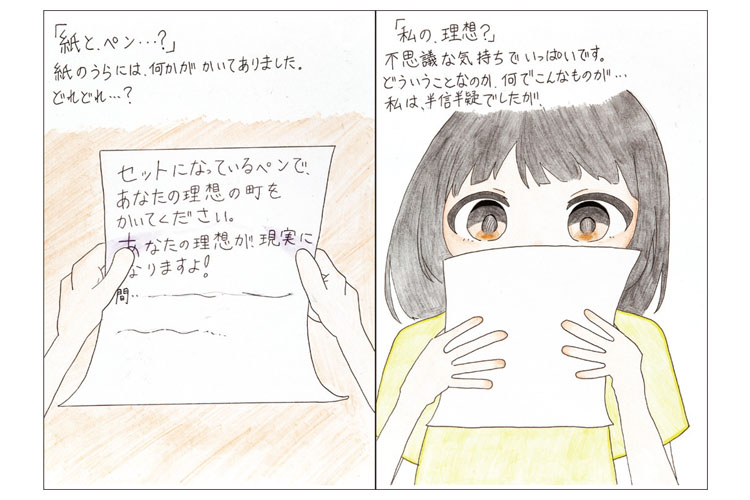 「紙と、ペン…?」
紙のうらには、何かが かいてありました。
どれどれ…?
セットになっているペンで、
あなたの理想の町を
かいてください。
あなたの理想が、現実に
なりますよ!
「私の、理想?」
不思議な気持ちで いっぱいです。
どういうことなのか、何でこんなものが…
私は、半信半疑でしたが、